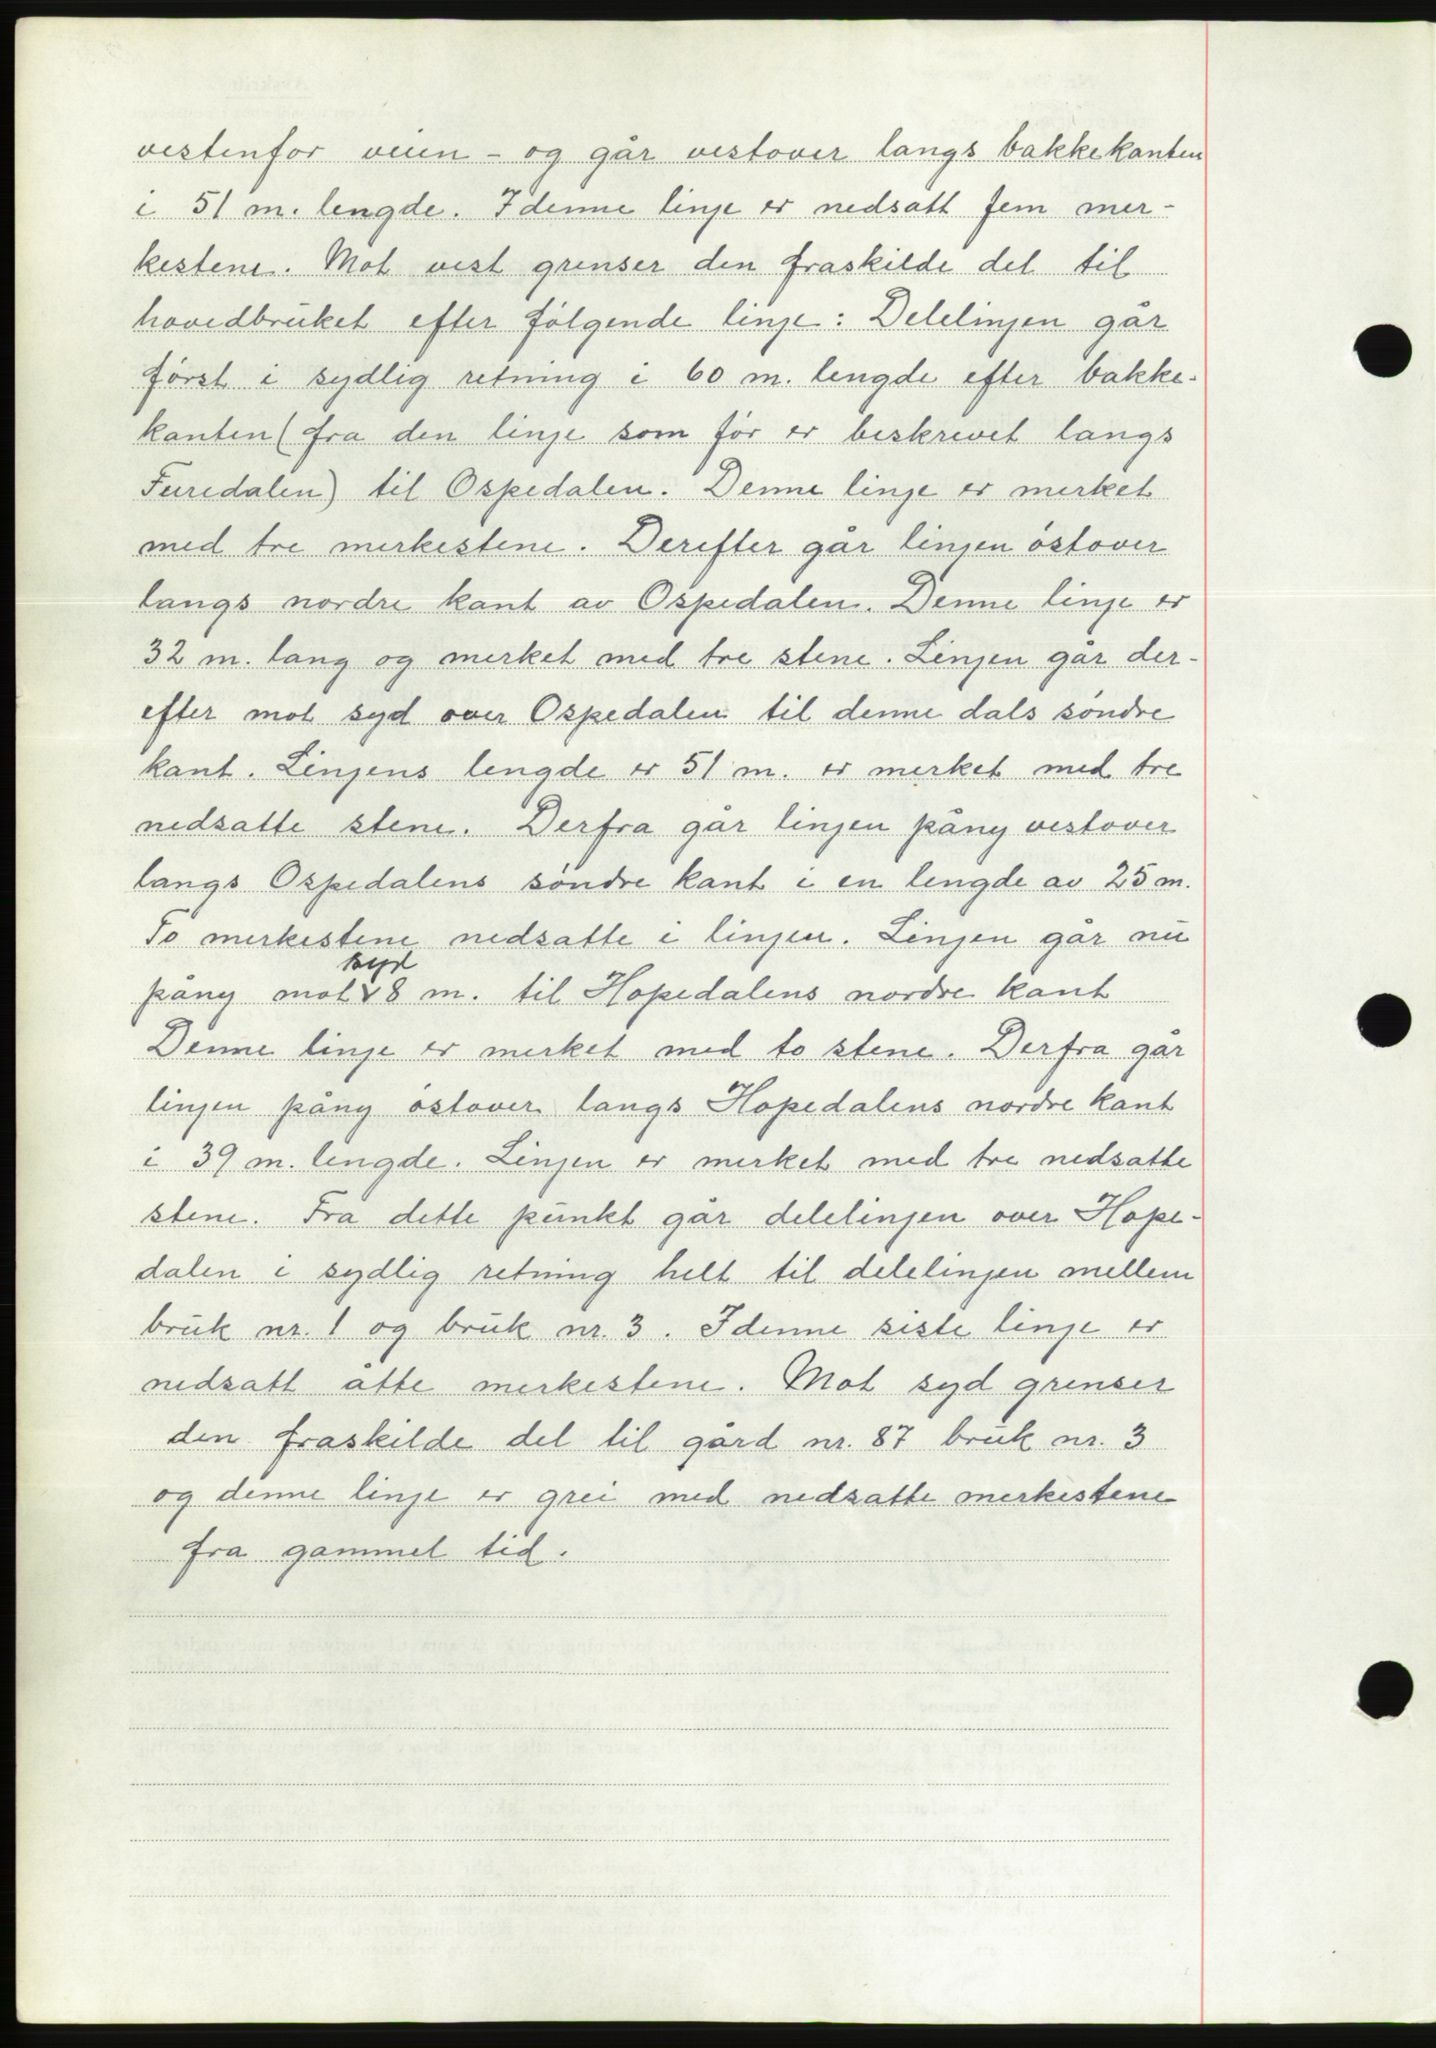 vestenfor veien - og går vestover langs bakkekanten
i 51 m. lengde. I denne linje er nedsatt fem mer-
kestene. Mot vest grenser den fraskilde del til
hovedbruket efter følgende linje: Delelinjen går
først i sydlig retning i 60 m. lengde efter bakke-
kanten (fra den linje som før er beskrevet langs
Furedalen) til Ospedalen. Denne linje er merket
med tre merkestene. Derefter går linjen østover
langs nordre kant av Ospedalen. Denne linje er
32 m. lang og merket med tre stene. Linjen går der-
efter mot syd over Ospedalen til denne dals søndre
kant. Linjens lengde er 51 m. er merket med tre
nedsatte stene. Derfra går linjen påny vestover
langs Ospedalens søndre kant i en lengde av 25 m.
To merkestene nedsatte i linjen. Linjen går nu
påny mot syd 8 m. til Hopedalens nordre kant
Denne linje er merket med to stene. Derfra går
linjen påny østover langs Hopedalens nordre kant
i 39 m. lengde. Linjen er merket med tre nedsatte
stene. Fra dette punkt går delelinjen over Hope-
dalen i sydlig retning helt til delelinjen mellem
bruk nr. 1 og bruk nr. 3. I denne siste linje er
nedsatt åtte merkestene. Mot syd grenser
den fraskilde del til gård nr. 87 bruk nr. 3
og denne linje er grei med nedsatte merkestene
fra gammel tid.